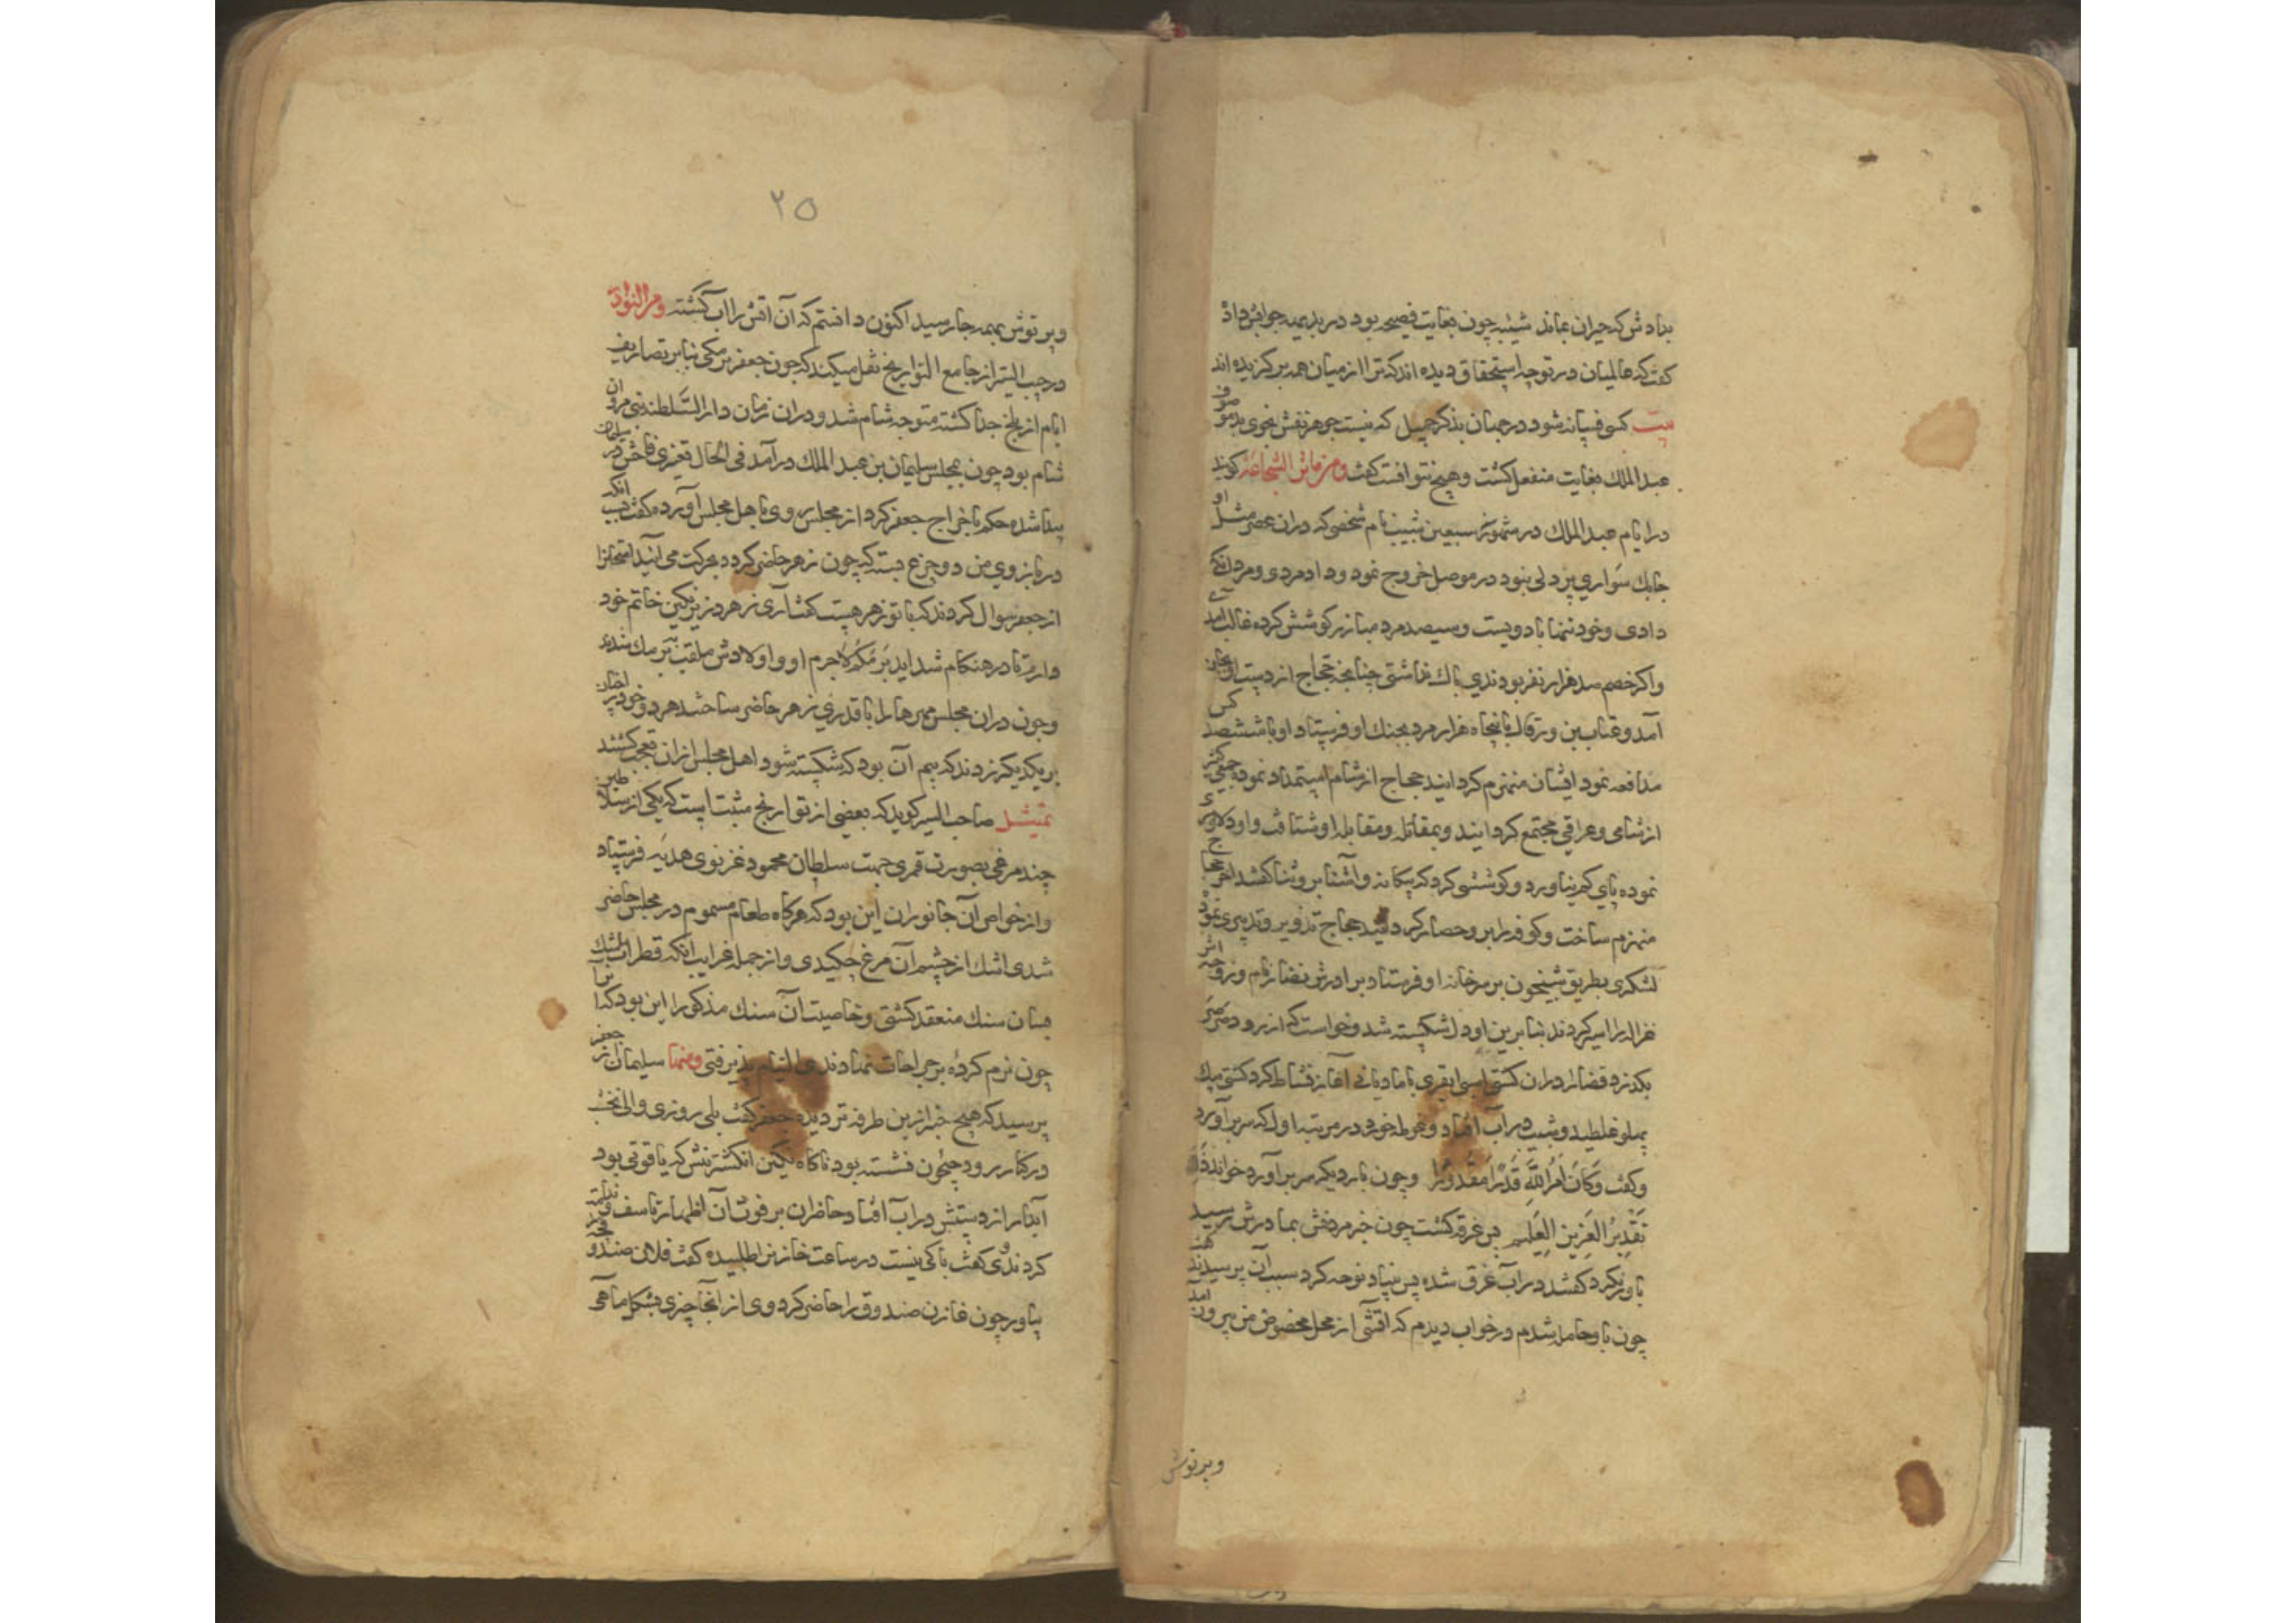 بدادش که حیران بماند شیبه چون بغایت فصیحه بود در بدیهه جوابش داد
گفت که عالمیان در تو چه استحقاق دیده اند که ترا از میان همه برگزیده اند
بیت کسی فسانه شود در جهان بذکر جمیل که نیست جوهر نفسش بخوی بد موصوف
عبد الملک بغایت منفعل گشت و هیچ نتوانست گفت ومن مآثر الشجاعة گویند
در ایام عبد الملک در سبعین شبیب نام شخصی که دران عصر مثل او
چابک سواری پر دلی نبود در موصل خروج نمود و داد مردی و مردانگی
دادی و خود تنها با دویست و سیصد مرد مبارز کوشش کرده غالب آمدی
و اگر خصم صد هزار نفر بودندی باک نداشتی چنانچه حجاج از دست او بجان
آمد و عتاب بن ورقا با پنجاه هزار مرد بجنک او فرستاد او با ششصد کس
مدافعه نمود ایشان منهزم گردانید حجاج از شام استمداد نموده جمعی کثیر
از شامی و عراقی مجتمع گردانید و بمقاتله و مقابله او شتافت و او دلاوری
نموده پای کم نیاورد و کوششی کرد که بیکانه و آشنا برو ثنا گفتند آخر حجاج
منهزم ساخت و کوفه را برو حصار گردانید حجاج تزویر و تدبیری نمود
لشکری بطریق شبیخون بر سر خانه او فرستاد برادرش نام و زوجه اش
غزاله را اسیر کردند بنابرین او دل شکسته شد و خواست که از رود صرصر
بگذرد قضا را دران کشتی اسپ ابقری با مادیانی آغاز نشاط کرد کشتی بیک
پهلو غلطید و شبیب در آب افتاد و غوطه خورد در مرتبه اول که سر برآورد
وگفت وَكَانَ أَمْرُ اللَّهِ قَدَرًا مَقْدُورًا و چون بار دیگر سر برآورد خواند ذَلِكَ
تَقْدِيرُ الْعَزِيزِ الْعَلِيمِ پس غرقه گشت چون خبر مردنش بمادرش رسید
باور نکرد گفتند در آب غرق شده پس بنیاد نوحه کرد سبب آن پرسیدند گفت
چون باو حامله شدم در خواب دیدم که آتشی از محل مخصوص من بیرون آمد
و پرتوش
۲۵
و پرتوش بهمه جا رسید اکنون دانستم که آن آتش را آب کشته ومن النوادر
در حبیب السیر از جامع التواریخ نقل میکند که چون جعفر برمکی بنابر تصاریف
ایام از بلخ جدا گشته متوجه شام شد و دران زمان دار السلطنه بنی مروان
شام بود چون بمجلس سلیمان بن عبد الملک درآمد فی الحال تغیری فاحش در سلیمان
پیدا شده حکم باخراج جعفر کرد از مجلس روی باهل مجلس آورده گفت سبب آنکه
در بازوی من دو جزع بسته که چون زهر حاضر گردد بحرکت می آیند امتحانرا
از جعفر سوال کردند که با تو زهر هست گفت آری زهر در زیر نگین خاتم خود
دارم تا در هنگام شداید برمکم لاجرم او و اولادش ملقب ببرمک شدند
و چون دران مجلس مهرها را با قدری زهر حاضر ساختند هر دو خود بر اختیار
بر یکدیگر زدند که بیم آن بود که شکسته شود اهل مجلس ازان تعجب گشتند
تمثیل صاحب السیر گوید که بعضی از تواریخ مثبت است که یکی از سلاطین
چند مرغی بصورت قمری جهت سلطان محمود غزنوی هدیه فرستاد
و از خواص آن جانوران این بود که هرگاه طعام مسموم در مجلس حاضر
شدی اشک از چشم آن مرغ چکیدی و از جمله غرایب آنکه قطرات اشک
بسان سنک منعقد گشتی و خاصیت آن سنک مذکور این بود که آنرا
چون نرم کرده بر جراحات نهادندی التیام پذیرفتی ومنها سلیمان از جعفر
پرسید که هیچ خبر ازین طرفه تر دیده جعفر گفت بلی روزی والی نخشب
در کنار رود جیحون نشسته بود ناگاه نگین انگشترینش که یاقوتی بود
آبدار از دستش در آب افتاد حاضران بر فوت آن اظهار تاسف
کردندی و گفت باکی نیست در ساعت خازنرا طلبیده گفت فلان صندوقچه
بیاور چون خازن صندوق را حاضر کرد وی از آنجا چیزی بشکل ماهی